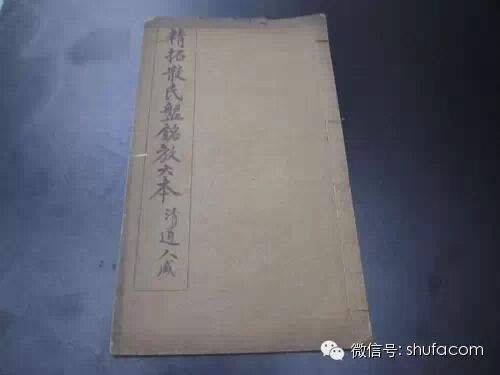 精拓散氏盤銘放大本 清道人臧
微信号: shufacom